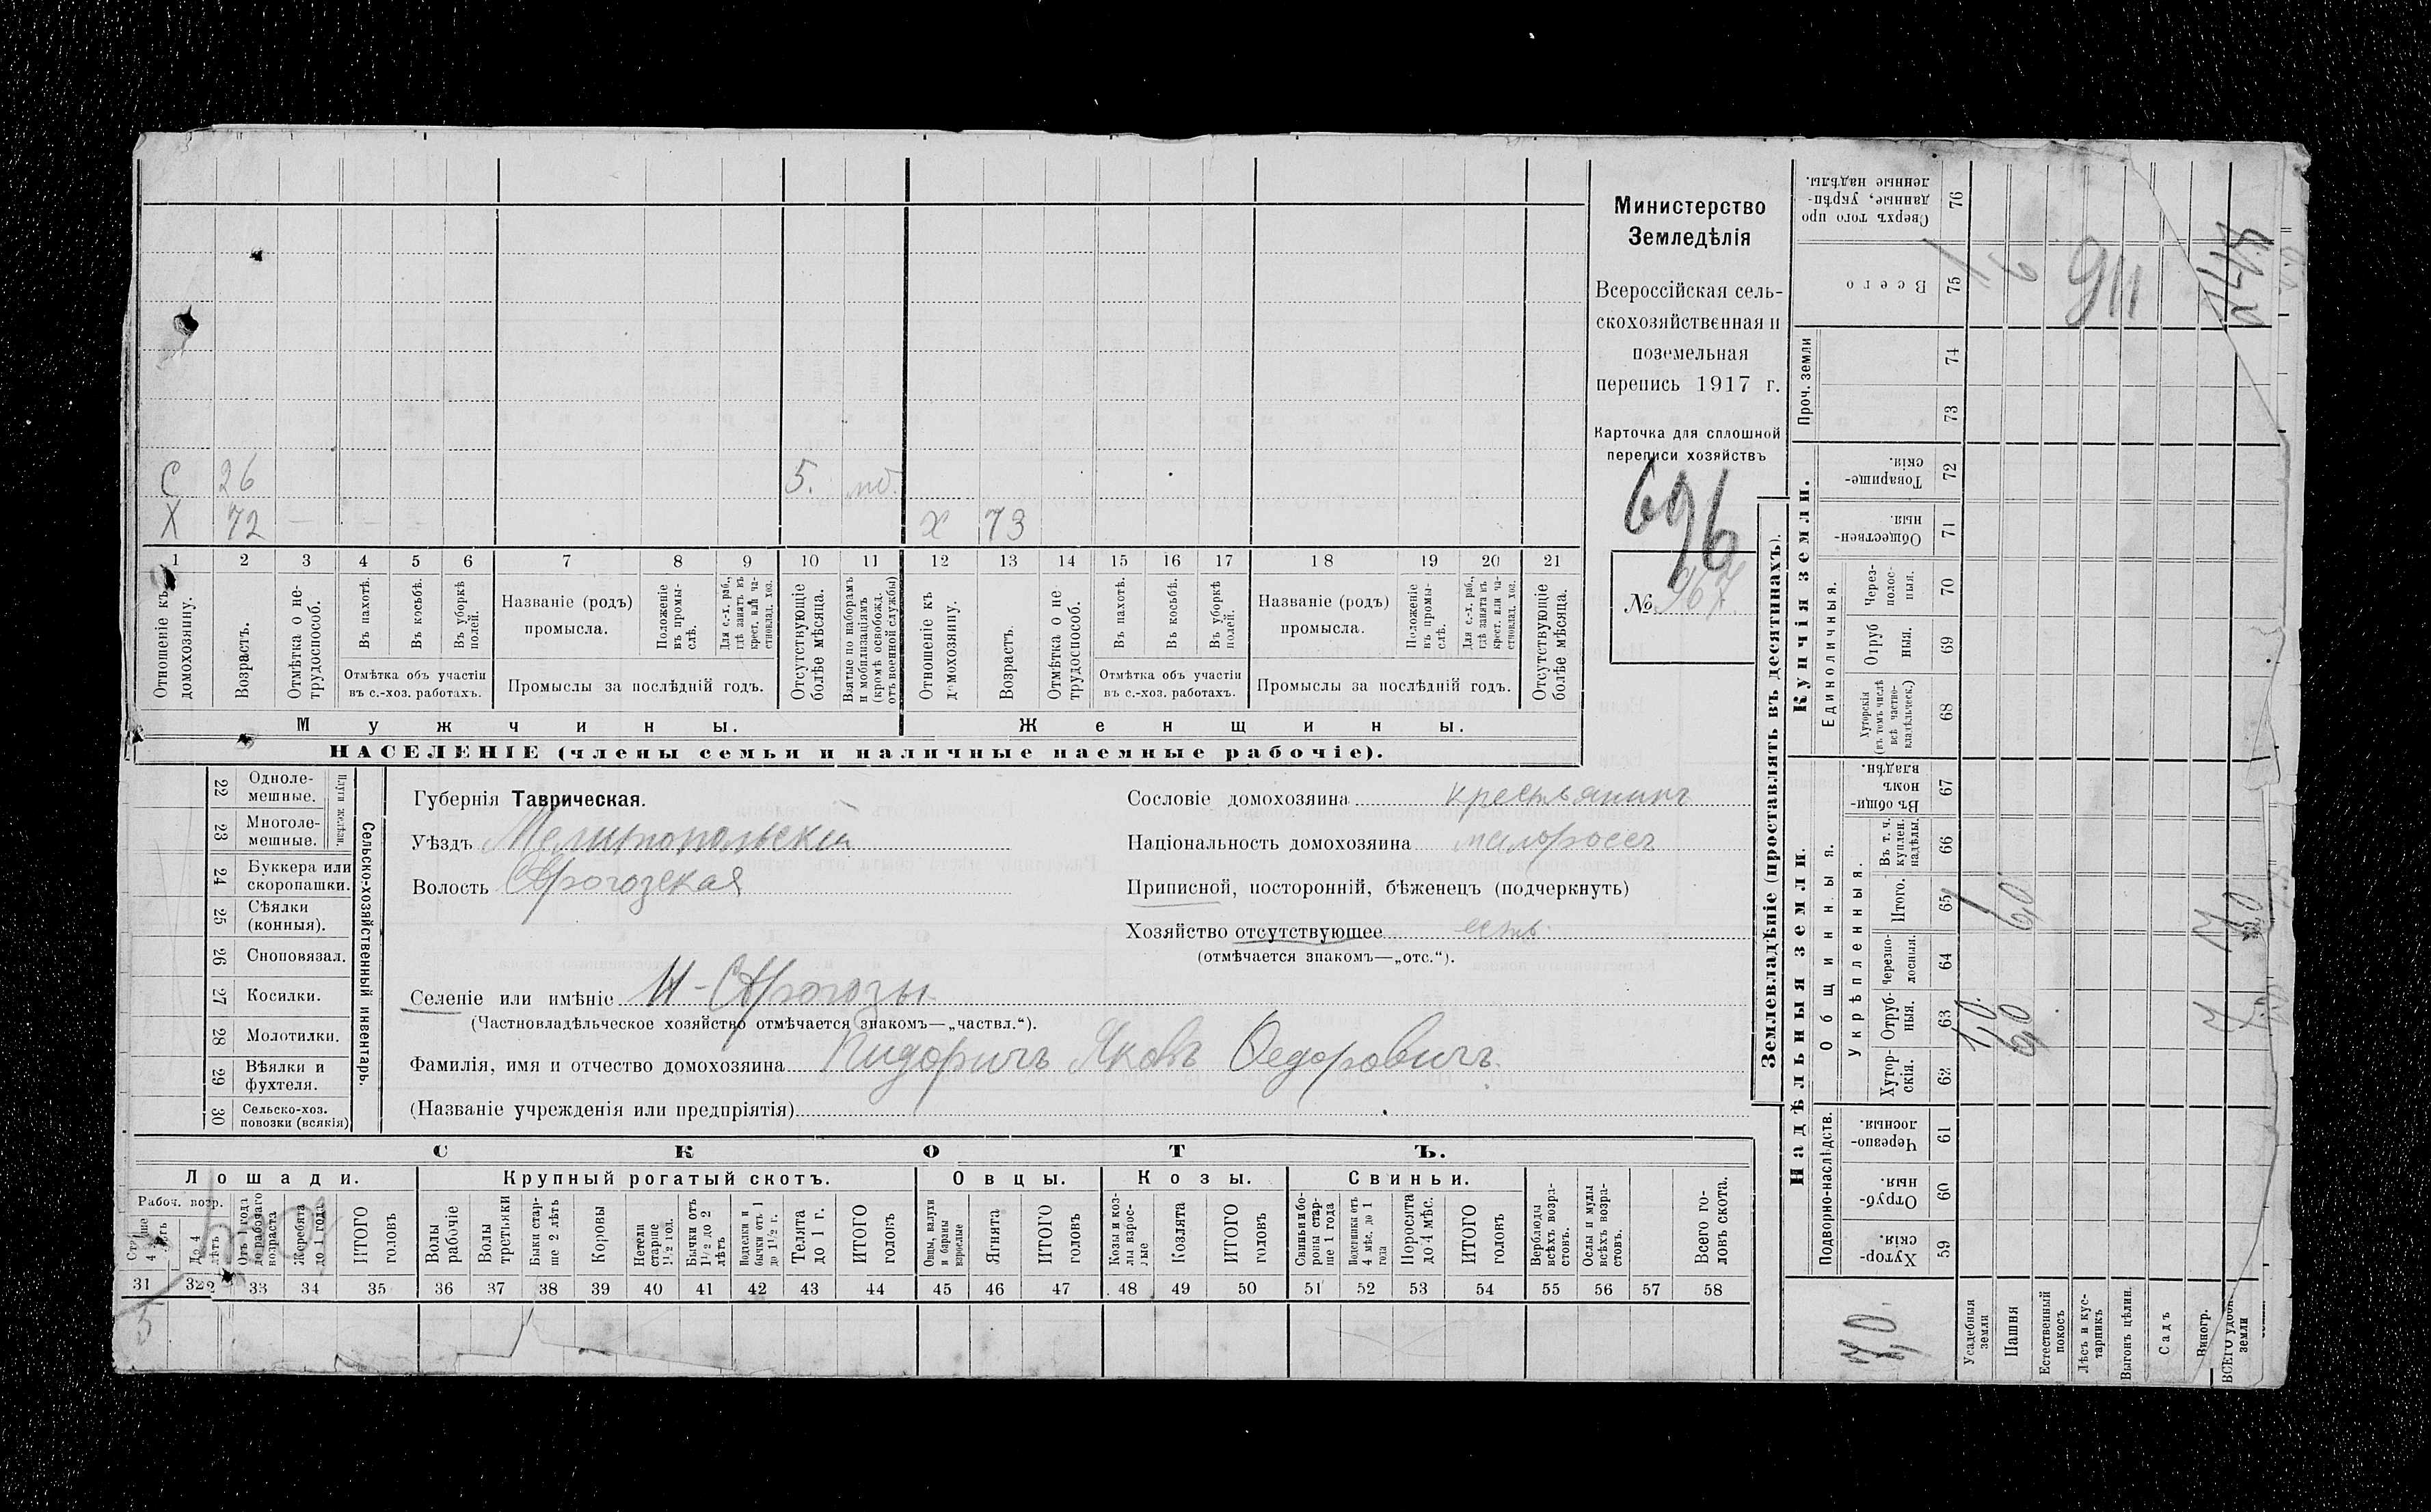 С 26 5. мб.
Х 72 х 73
1 2 3 4 5 6 7 8 9 10 11 12 13 14 15 16 17 18 19 20 21
Отношеніе къ домохозяину.
Возрастъ.
Отмѣтка о не-
трудоспособ.
Въ пахотѣ.
Въ косьбѣ.
Въ уборкѣ
полей.
Отмѣтка объ участіи
въ с.-хоз. работахъ.
Названіе (родъ)
промысла.
Положеніе
въ промы-
слѣ.
Для с.-х. раб.,
гдѣ занятъ въ
крест. или ча-
стновлад. хоз.
Промыслы за послѣдній годъ.
Отсутствующіе
болѣе мѣсяца.
Взятые по наборамъ
и мобилизаціямъ
(кромѣ освобожд.
отъ военной службы)
Отношеніе къ
домохозяину.
Возрастъ.
Отмѣтка о не
трудоспособ.
Въ пахотѣ.
Въ косьбѣ.
Въ уборкѣ
полей.
Отмѣтка объ участіи
въ с.-хоз. работахъ.
Названіе (родъ)
промысла.
Положеніе
въ промы-
слѣ.
Для с.-х. раб.,
гдѣ занята въ
крест. или ча-
стновлад. хоз.
Промыслы за послѣдній годъ.
Отсутствующіе
болѣе мѣсяца.
Мужчины.
Женщины.
НАСЕЛЕНІЕ (члены семьи и наличные наемные рабочіе).
Министерство
Земледѣлія
Всероссійская сель-
скохозяйственная и
поземельная
перепись 1917 г.
Карточка для сплошной
переписи хозяйствъ
696
№ 967
22 Одноле-
мешные.
23 Многоле-
мешные.
Плуги желѣзн.
24 Буккера или
скоропашки.
25 Сѣялки
(конныя).
26 Сноповязал.
27 Косилки.
28 Молотилки.
29 Вѣялки и
фухтеля.
30 Сельско-хоз.
повозки (всякія)
Сельско-хозяйственный инвентарь.
Губернія Таврическая.
Уѣздъ Мелитопольскій
Волость Сѣрогозская
Селеніе или имѣніе Н-Сѣрогозы
(Частновладѣльческое хозяйство отмѣчается знакомъ—„частвл.“).
Фамилія, имя и отчество домохозяина Пидоричъ Яковъ Федоровичъ
(Названіе учрежденія или предпріятія)
Сословіе домохозяина крестьянинъ
Національность домохозяина малороссъ
Приписной, посторонній, бѣженецъ (подчеркнуть)
Хозяйство отсутствующее есть.
(отмѣчается знакомъ—„отс.“).
СКОТЪ.
Лошади.
Рабоч. возр.
До 4
лѣтъ
Отъ 1 года
до рабочаго
возраста
Жеребята
до 1 года
ИТОГО
головъ
Крупный рогатый скотъ.
Волы
рабочіе
Волы
третьяки
Быки стар-
ше 2 лѣтъ
Коровы
Нетели
старше
1½ год.
Бычки отъ
1½ до 2
лѣтъ
Подтелки и
бычки отъ 1
до 1½ г.
Телята
до 1 г.
ИТОГО
головъ
Овцы.
Овцы, валухи
и бараны
взрослые
Ягнята
ИТОГО
головъ
Козы.
Козы и коз-
лы взрос-
лые
Козлята
ИТОГО
головъ
Свиньи.
Свиньи и бо-
ровы стар-
ше 1 года
Подсвинки отъ
4 мѣс. до 1
года
Поросята
до 4 мѣс.
ИТОГО
головъ
Верблюды
всѣхъ возра-
стовъ.
Ослы и мулы
всѣхъ возра-
стовъ.
Всего го-
ловъ скота.
31 32 33 34 35 36 37 38 39 40 41 42 43 44 45 46 47 48 49 50 51 52 53 54 55 56 57 58
5
Землевладѣніе (проставлять въ десятинахъ).
Надѣльныя земли.
Подворно-наслѣдств.
Хутор-
скія. 59
Отруб-
ныя. 60
Черезпо-
лосныя. 61
Общинныя.
Укрѣпленныя.
Хутор-
скія. 62
Отруб-
ныя. 63
Черезпо-
лосныя. 64
Итого. 65
Въ т. ч.
куплен.
надѣлы. 66
Въ общи-
номъ
владѣн. 67
Купчія земли.
Единоличныя.
Хуторскія
(въ томъ числѣ
всѣ частно-
владѣльческ.) 68
Отруб
ныя. 69
Через-
полос-
ныя. 70
Обществен-
ныя. 71
Товарище-
скія. 72
Проч. земли
73 74
Всего 75
Сверхъ того про
данные, укрѣп-
ленные надѣлы. 76
Усадебныя
земли 1,0 1 1
Пашня 6,0 6,0 6
Естественный
покосъ
Лѣсъ и кус-
тарникъ
911
Выгонъ цѣлин.
Садъ
Виногр.
ВСЕГО удобн.
земли
7,0